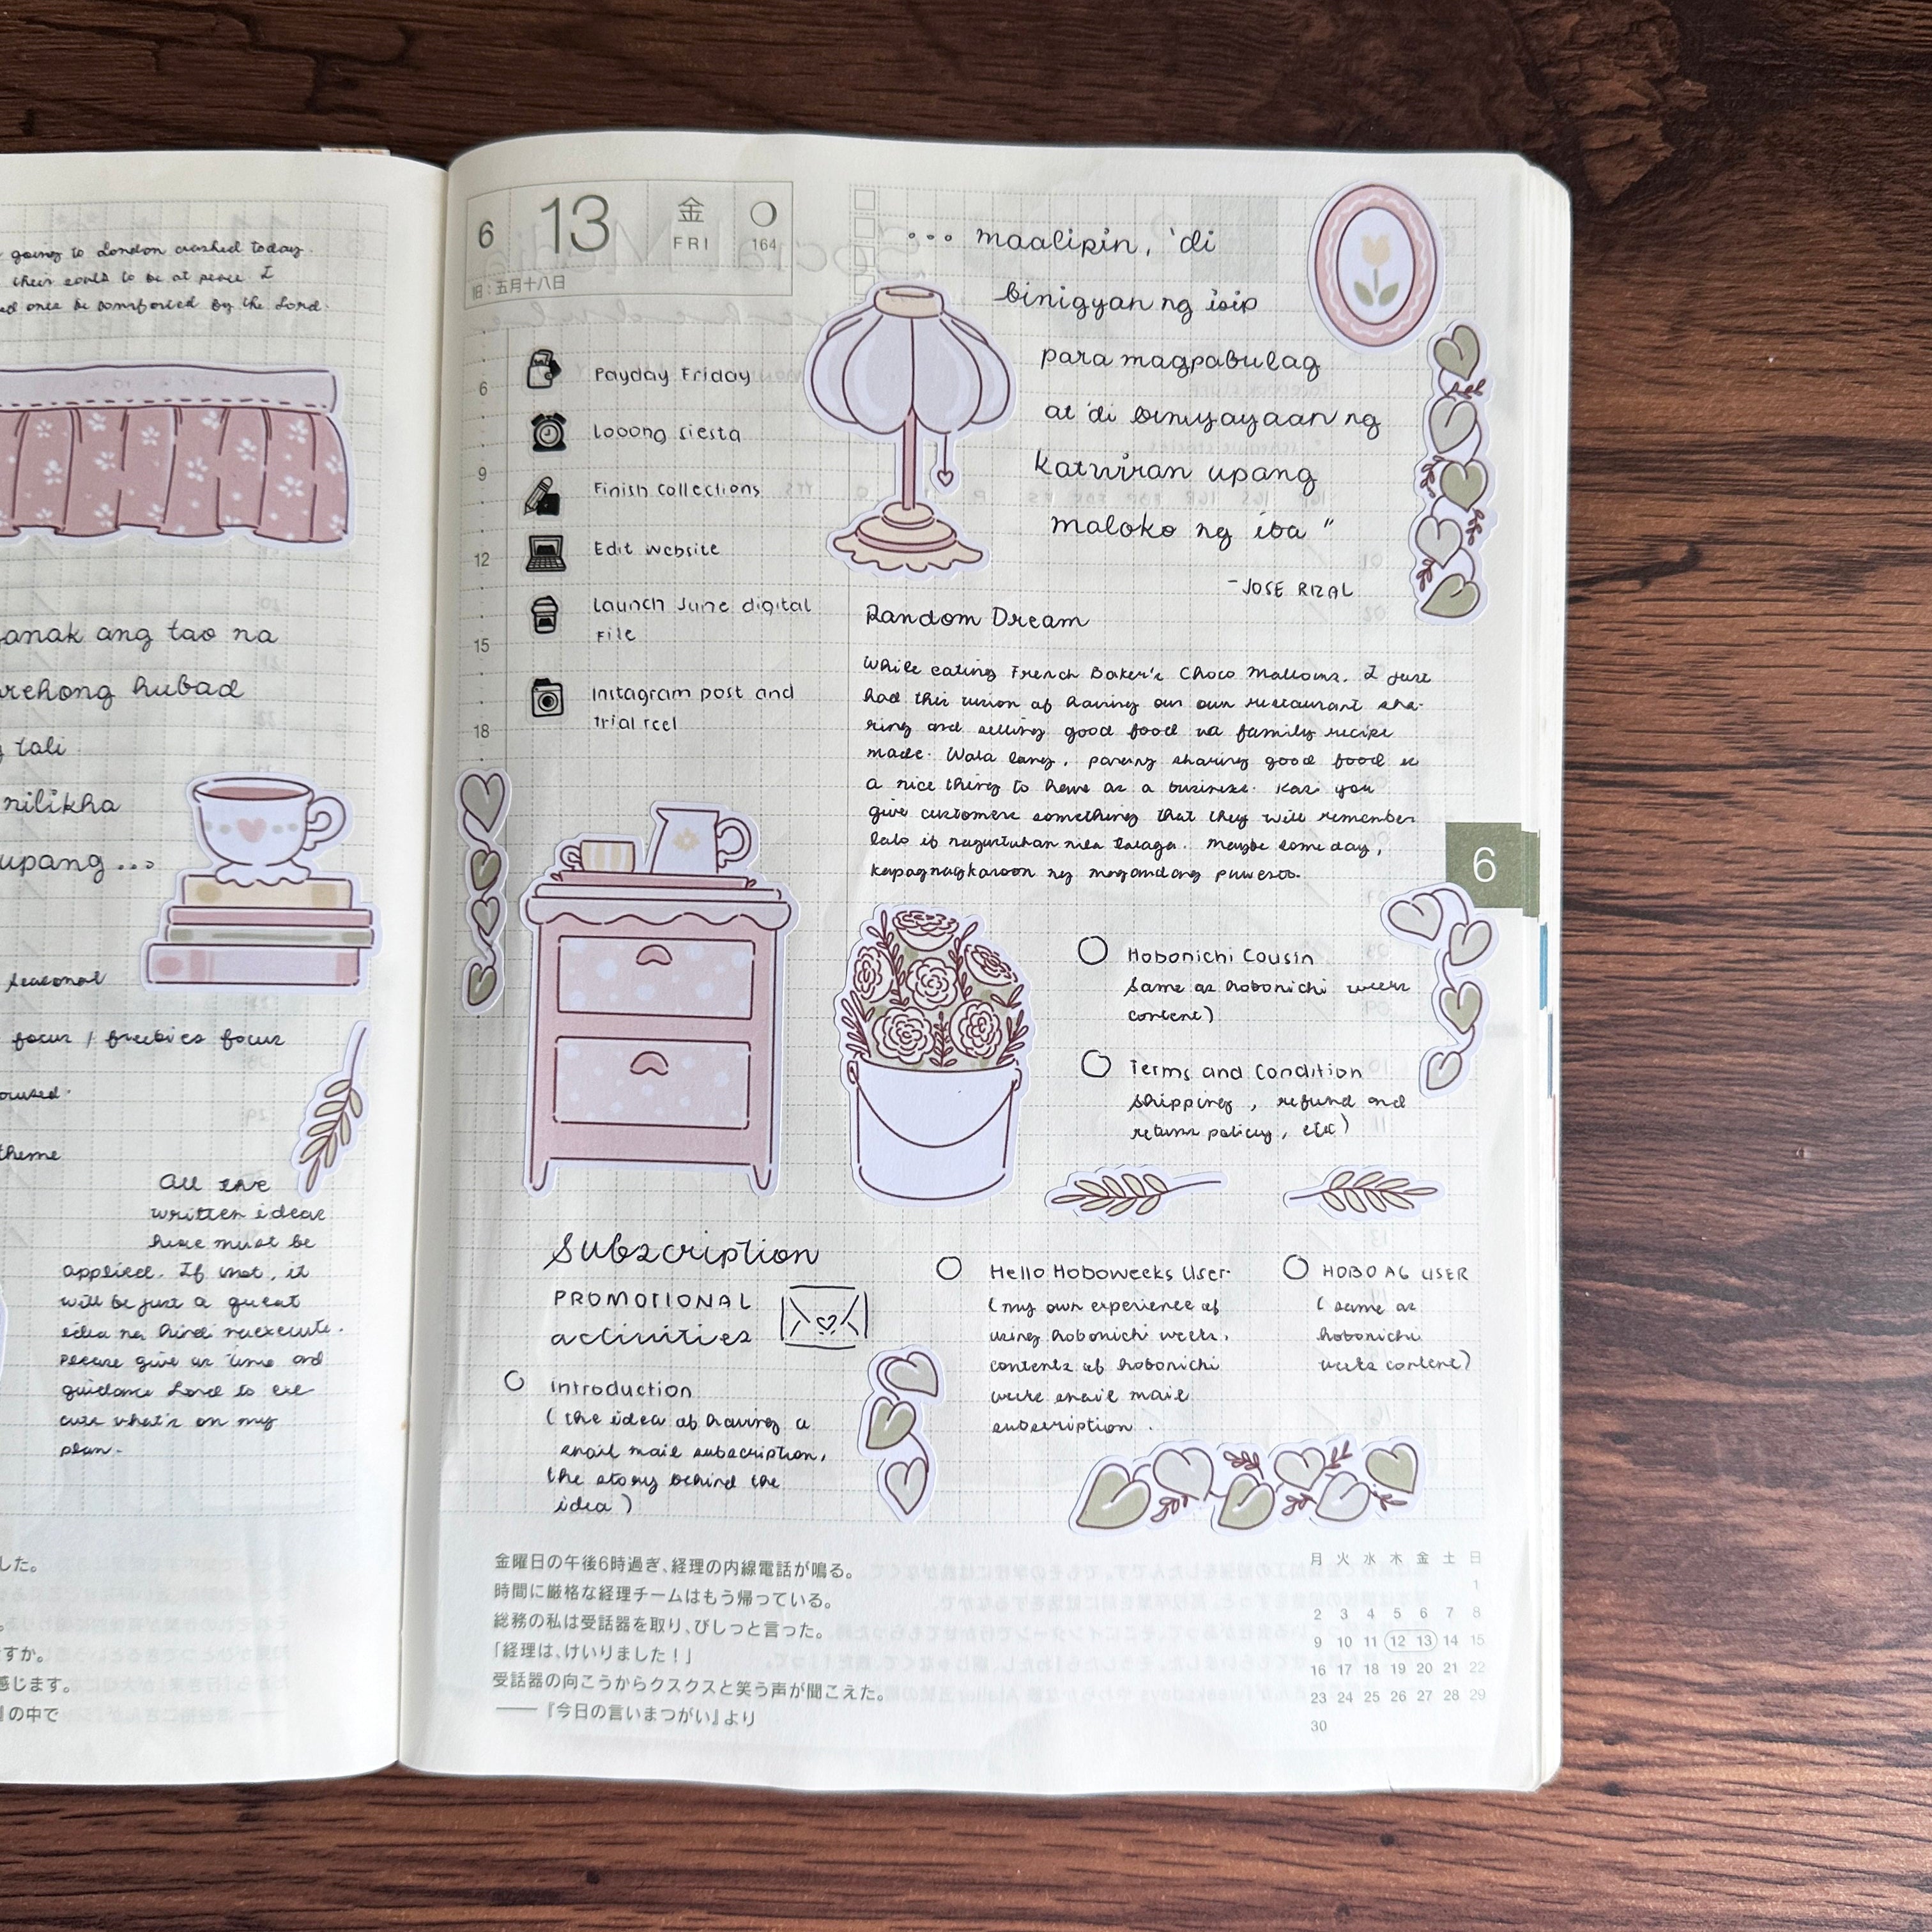 going to London crashed today.
their souls to be at peace. I
once be comforted by the Lord.
anak ang tao na
hubad
tali
nilikha
upang ...
seasonal
focus / freebies focus
theme
All the
written ideas
here must be
applied. If not, it
will be just a great
idea na hindi naexecute.
Please give us time and
guidance Lord to exe
cute what's on my
plan.
した。
すか。
感じます。
の中で
6 13 金 FRI 164
旧：五月十八日
6
9
12
15
18
Payday Friday
Looong siesta
Finish collections
Edit website
Launch June digital
File
Instagram post and
trial reel
... maalipin, 'di
binigyan ng isip
para magpabulag
at 'di biniyayaan ng
katwiran upang
maloko ng iba "
-JOSE RIZAL
Random Dream
While eating French Baker's Choco Mallows. I just
had this vision of having our own restaurant sha-
ring and selling good food na family recipe
made. Wala lang, parang sharing good food is
a nice thing to have as a business. Kasi you
give customers something that they will remember
lalo if nagustuhan nila talaga. Maybe some day,
kapag nagkaroon ng magandang puwesto.
6
Hobonichi Cousin
same as hobonichi weeks
content)
Terms and Condition
shipping, refund and
return policy, etc)
Subscription
PROMOTIONAL
activities
Introduction
( the idea of having a
snail mail subscription,
the story behind the
idea )
Hello Hoboweeks User
(my own experience of
using hobonichi weeks,
contents of hobonichi
weeks snail mail
subscription.
HOBO A6 USER
( same as
hobonichi
weeks content)
金曜日の午後6時過ぎ、経理の内線電話が鳴る。
時間に厳格な経理チームはもう帰っている。
総務の私は受話器を取り、びしっと言った。
「経理は、けいりました！」
受話器の向こうからクスクスと笑う声が聞こえた。
——『今日の言いまつがい』より
月 火 水 木 金 土 日
1
2 3 4 5 6 7 8
9 10 11 12 13 14 15
16 17 18 19 20 21 22
23 24 25 26 27 28 29
30